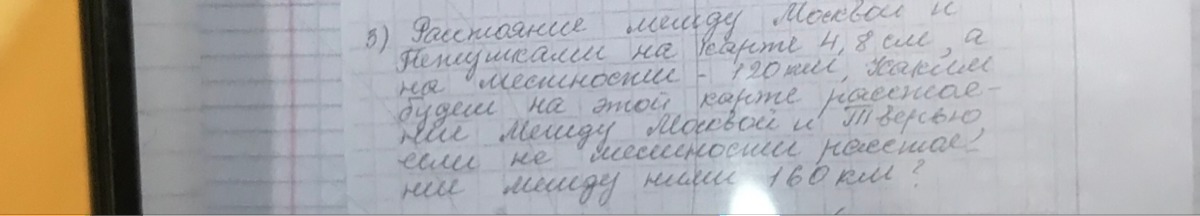 3) Расстояние между Москвой и
Петушками на карте 4,8 см, а
на местности - 120 км, каким
будет на этой карте расстае-
ние между Москвой и Тверью
если не местности расстае-
ние между ними 160 км?